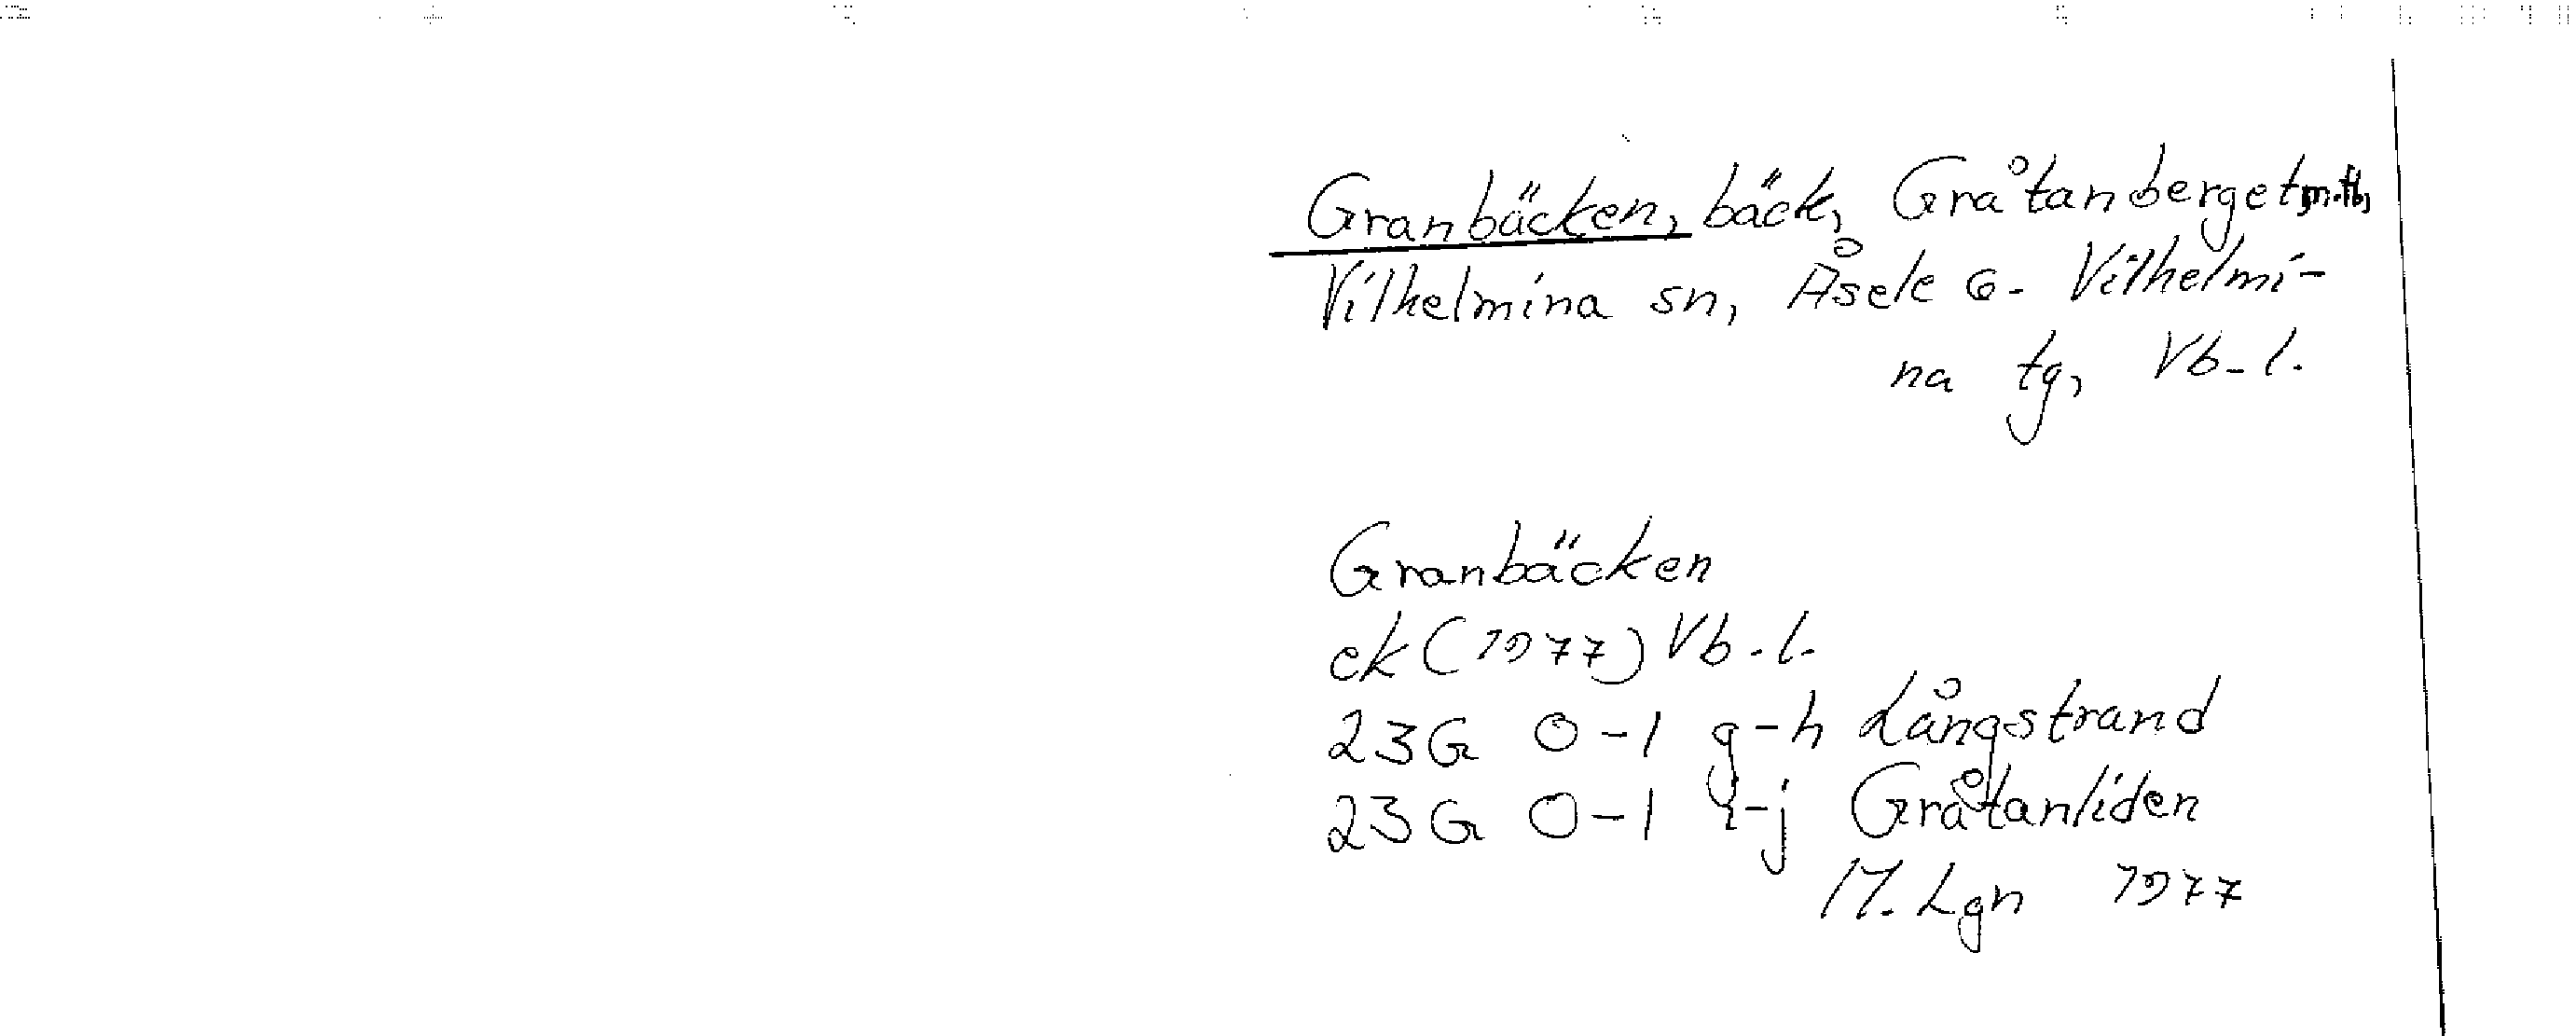 Granbäcken, bäck, Gråtanberget m.fl.,
Vilhelmina sn, Åsele o. Vilhelmi-
na tg, Vb. l.
Granbäcken
ek (1977) Vb. l.
23G 0-1 g-h Långstrand
23G 0-1 i-j Gråtanliden
M. Lgn 1977